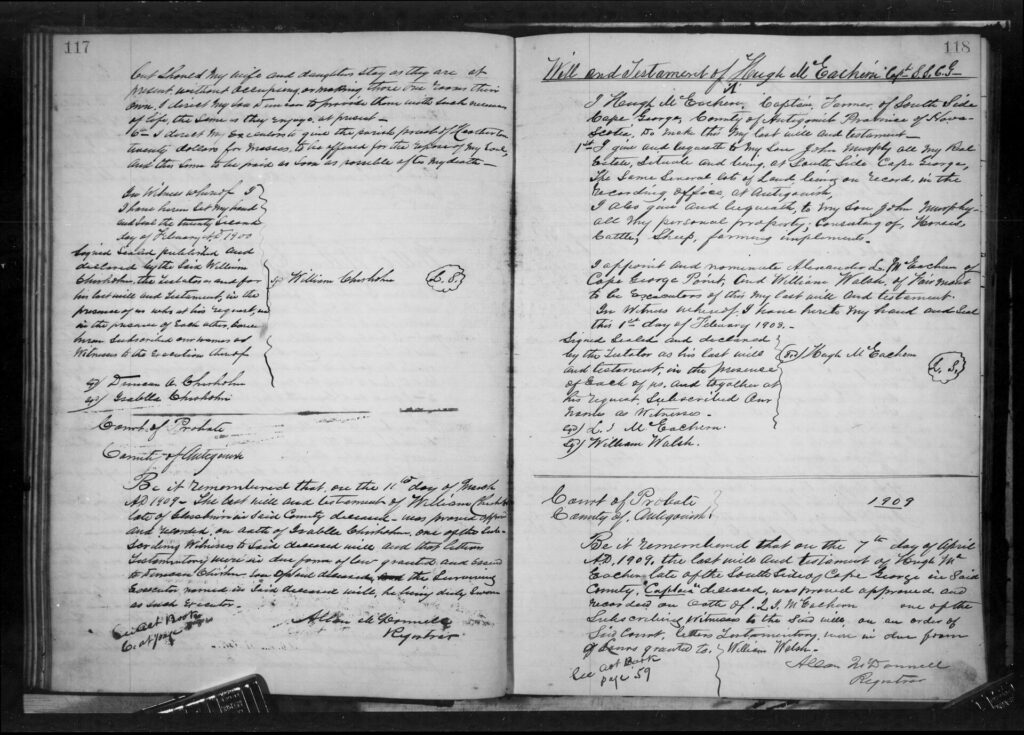 117
but should my wife and daughters stay as they are at
present, without occupying or making those one room their
own, I direct my son Duncan to provide them with such
of life, the same as they enjoy, at present —
I direct my Executors to give the parish priest of
twenty dollars for masses, to be offered for the repose of my soul,
and this sum to be paid as soon as possible after my death —
In Witness whereof I
I have herein set my hand
and seal the twenty second
day of February AD 1900
Signed Sealed published and
declared by the said William
Chisholm, the testator, as and for
his last will and testament, in the
presence of us who at his request, and
in the presence of each other, have
herein subscribed our names as
Witnesses to the Execution thereof
William Chisholm
L.S.
Duncan A. Chisholm
Isabella Chisholm
Court of Probate
County of Antigonish
Be it remembered that, on the 11th day of March
AD. 1909 — The last will and testament of William
late of in said County deceased — was proved
and recorded, on oath of Isabella Chisholm, one of the
Witnesses to said deceased will and that letters
Testamentary were in due form of law granted and
to Duncan Chisholm son of said deceased, the surviving
Executor named in said deceased will, he being duly sworn
as such Executor.
See Act Book
at page
Allan McDonnell
Registrar
118
Will and Testament of Hugh McEachern "Capt" S.S.C.G —
I Hugh McEachern, Captain, Farmer, of South Side
Cape George, County of Antigonish Province of Nova-
Scotia, do make this my last will and testament —
1st I give and bequeath to my son John Murphy all my Real
Estate, situate and being, at South Side Cape George,
The same several lots of land being on record, in the
recording office, at Antigonish,
I also, give and bequeath, to my son John Murphy
all my personal property, consisting of, Horses
Cattle, Sheep, farming implements.
I appoint and nominate Alexander L. McEachern of
Cape George Point, and William Walsh, of Fairmont
to be Executors of this my last will and testament
In Witness whereof, I have hereto my hand and seal
this 1st day of February 1909. —
Signed Sealed and declared
by the Testator as his last will
and testament, in the presence
of Each of us, and together at
his request, subscribed our
name as Witnesses —
Hugh McEachern
L.S.
L. J McEachern.
William Walsh.
Court of Probate
County of Antigonish
1909
Be it remembered that on the 7th day of April
AD. 1909, the last will and testament of Hugh Mc
Eachern late of the South Side of Cape George in said
County, "Captain" deceased, was proved approved and
recorded on oath of. L J. McEachern one of the
subscribing witnesses to the said will, on an order of
said Court, letters testamentary, were in due form
of Law granted to. William Walsh.
See Act Book
page 59
Allan McDonnell
Registrar